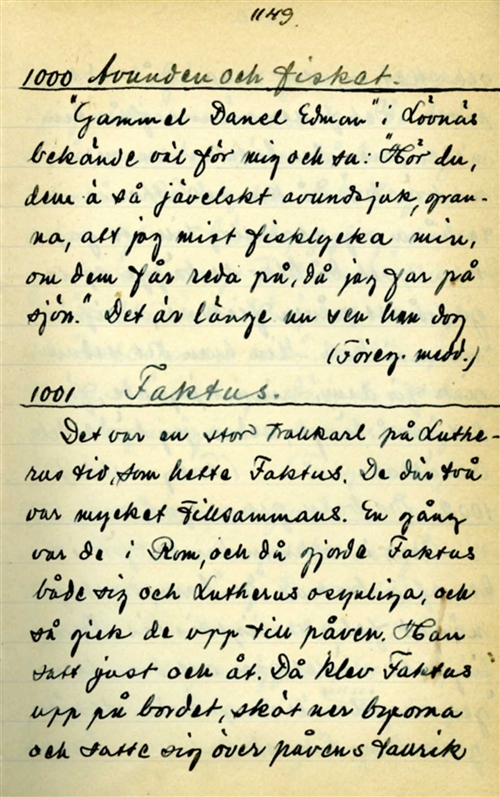 1149.
1000 Avunden och fisket.
"Gammel Danel Edman" i Lövnäs
bekände väl för mig och sa: "Hör du,
dem ä så jävelskt avundsjuk, gran-
na, att jag mist fisklycka min,
om dem får reda på, då jag far på
sjön." Det är länge nu sen han dog
(Föreg. medd.)
1001 Faktus.
Det var en stor trollkarl på Luthe-
rus tid, som hette Faktus. De där två
var mycket tillsammans. En gång
var de i Rom, och då gjorde Faktus
både sig och Lutherus osynliga, och
så gick de upp till påven. Han
satt just och åt. Då klev Faktus
upp på bordet, sköt ner byxorna
och satte sig över påvens tallrik